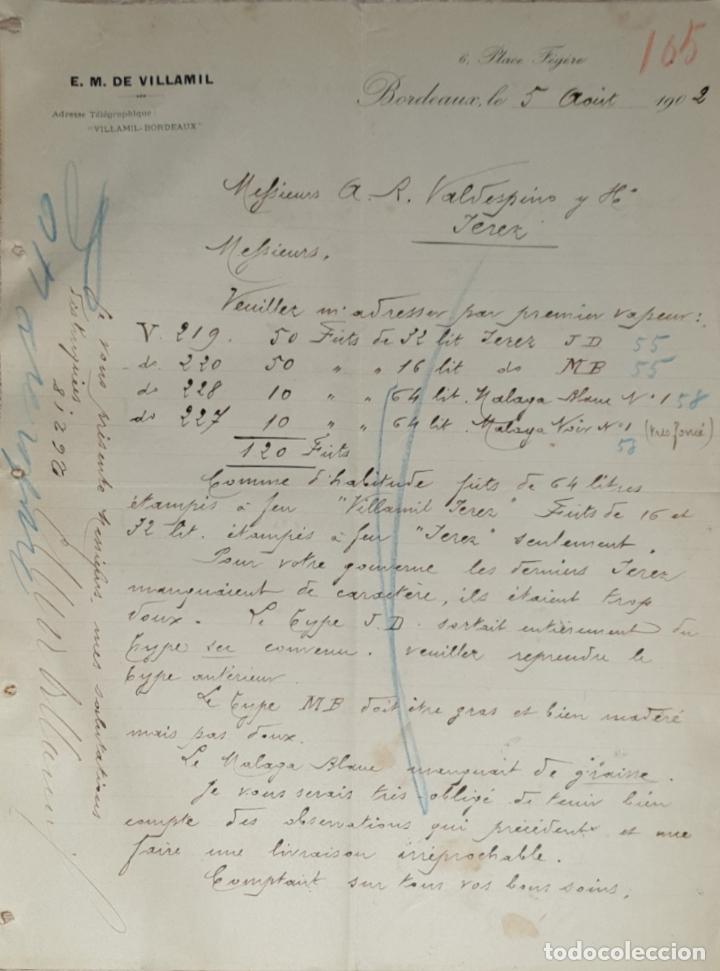 165
6, Place Fégère
E. M. DE VILLAMIL
Bordeaux, le 5 Août 1902
Adresse Télégraphique:
"VILLAMIL-BORDEAUX"
Messieurs A. R. Valdespino y Hº
Jerez
Messieurs,
Veuillez m'adresser par premier vapeur:
V. 219. 50 Futs de 32 lit Jerez J D 55
do 220 50 " " 16 lit do MB 55
do 228 10 " " 64 lit. Malaga Blanc Nº 1 58
do 227 10 " " 64 lit. Malaga Noir Nº 1 (très foncé)
58
120 Futs
Comme d'habitude futs de 64 litres
étampés à feu "Villamil Jerez" Futs de 16 et
32 lit. étampés à feu "Jerez" seulement.
Pour votre gouverne les derniers Jerez
manquaient de caractère, ils étaient trop
doux. Le type J.D. sortait entièrement du
type sec convenu. veuillez reprendre le
type antérieur.
Le type MB doit être gras et bien madéré
mais pas doux.
Le Malaga Blanc manquait de graisse.
Je vous serais très obligé de tenir bien
compte des observations qui précédent et me
faire une livraison irréprochable.
Comptant sur tous vos bons soins,
Je vous présente Messieurs, mes salutations
distinguées
todocoleccion.net